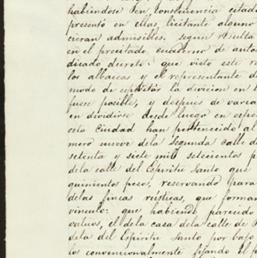 habiendose en consecuencia citado
presentó en ellas licitante alguno
cieran admisibles. segun resulta
en el precitado cuaderno de autos
dicado decreto: que visto este re
los albaceas y el representante d
modo de la division en l
fuese posible, y despues de varia
en dividirse desde luego en espe
esta ciudad han pertenecido al
meró nueve dela Segunda calle d
setenta y siete mil setecientos p
dela calle del Espiritu Santo que
quinientos pesos, reservando para
delas fincas rústicas, que forman
vinculo: que habiendo parecido
valuos, el dela casa dela calle de
dela del Espiritu Santo por bajo
los convencionalmente fijando el p